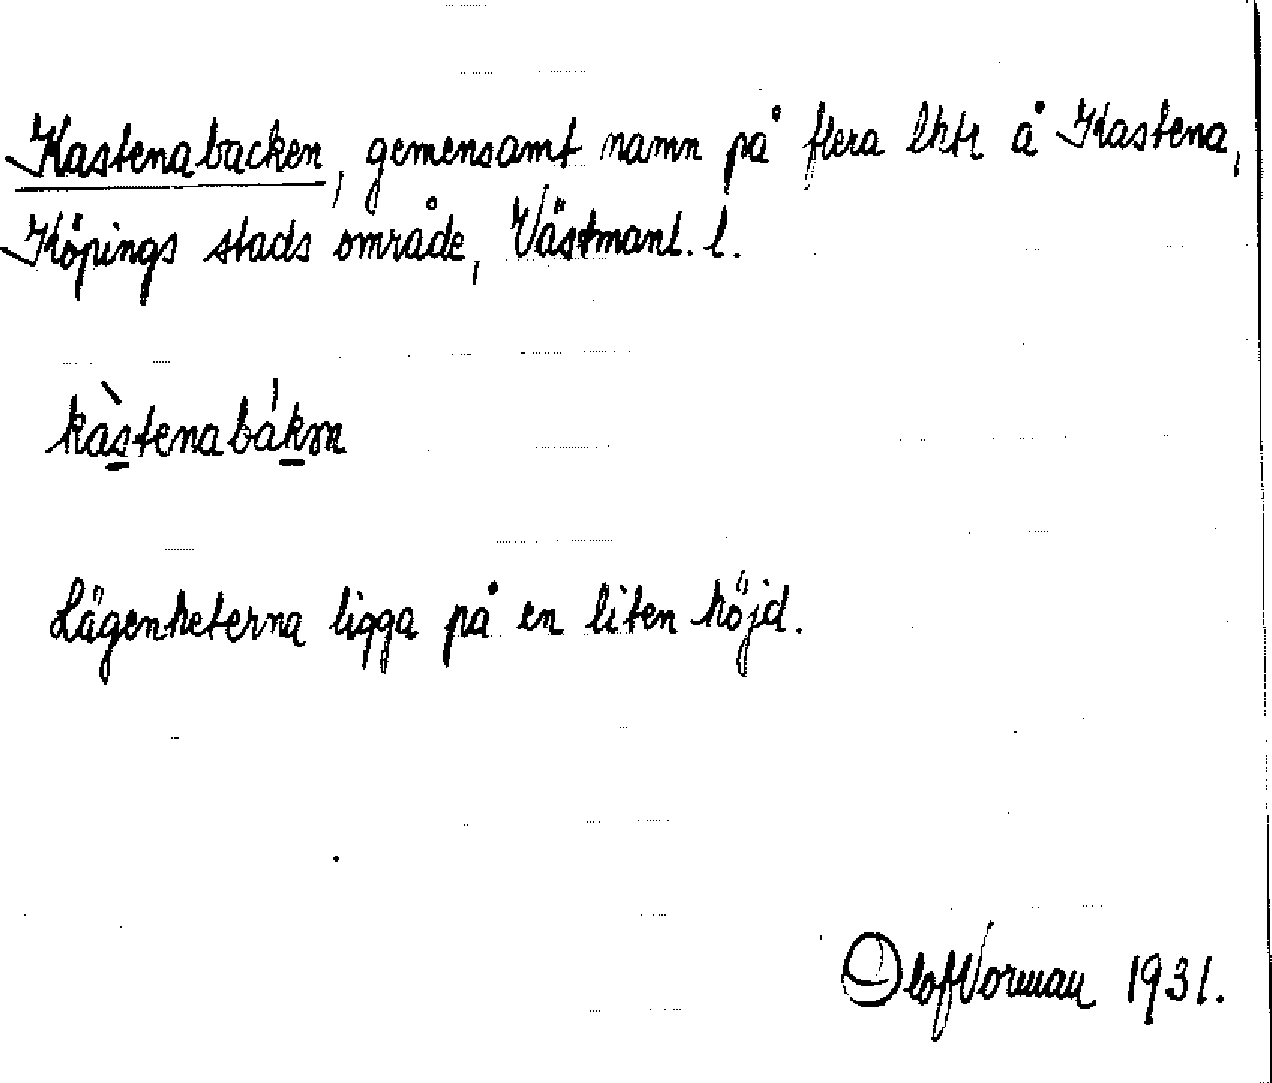 Kastenabacken, gemensamt namn på flera lhtr å Kastena,
Köpings stads område, Västmanl. l.
kàstenabákɷn
Lägenheterna ligga på en liten höjd.
Olof Norman 1931.